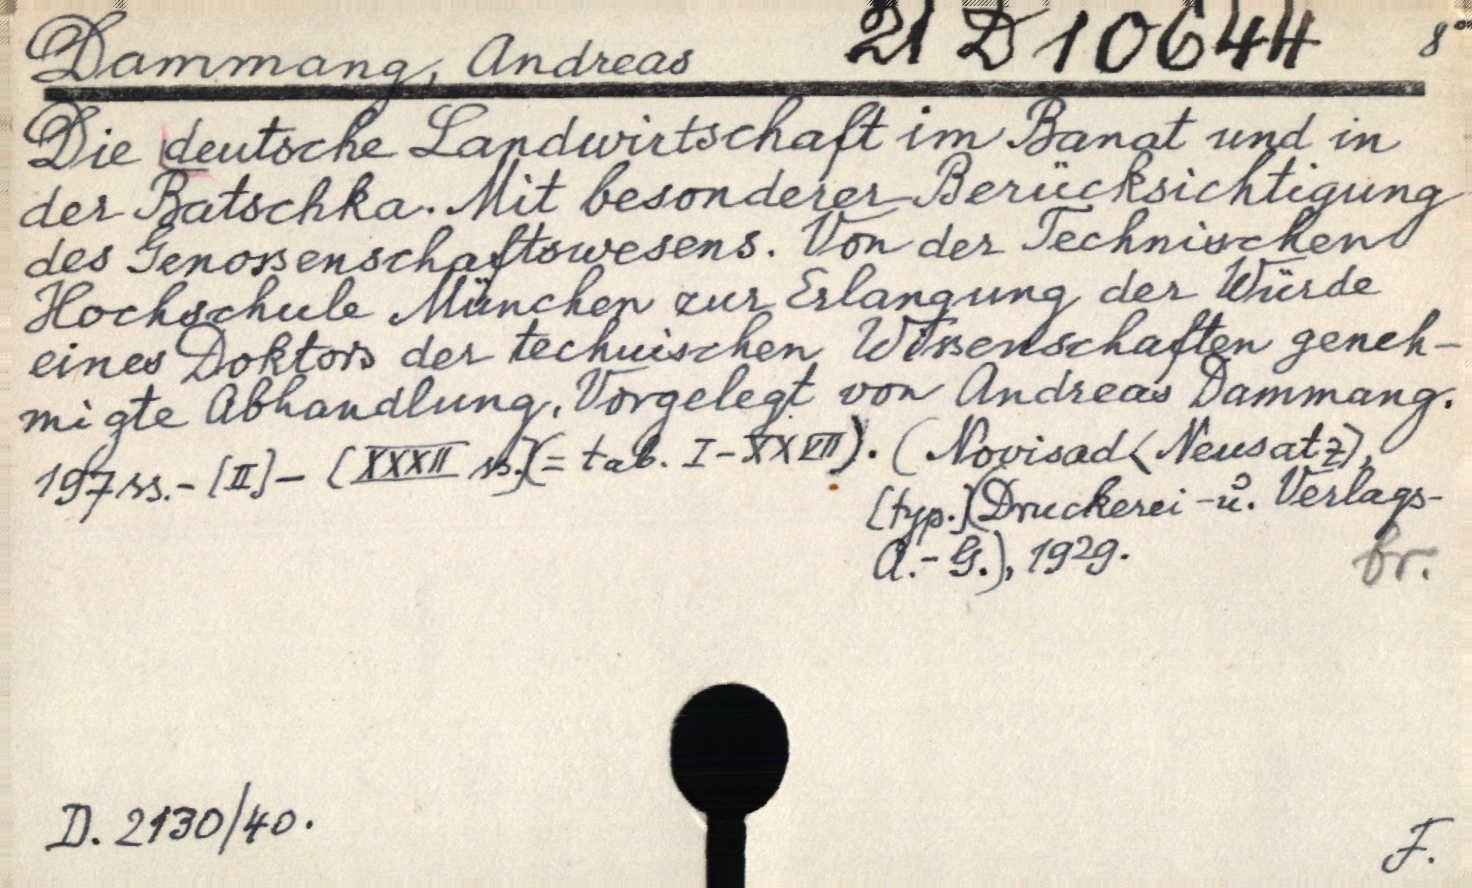 Dammang, Andreas 21 D 10644 8°
Die deutsche Landwirtschaft im Banat und in
der Batschka. Mit besonderer Berücksichtigung
des Genossenschaftswesens. Von der Technischen
Hochschule München zur Erlangung der Würde
eines Doktors der technischen Wissenschaften geneh-
migte Abhandlung, Vorgelegt von Andreas Dammang.
197 ss. - [II] - [XXXII ss.] (= tab. I - XXVII). (Novisad <Neusatz>,
[typ.] (Druckerei - u. Verlags-
A. - G.), 1929.
br.
D. 2130/40.
F.